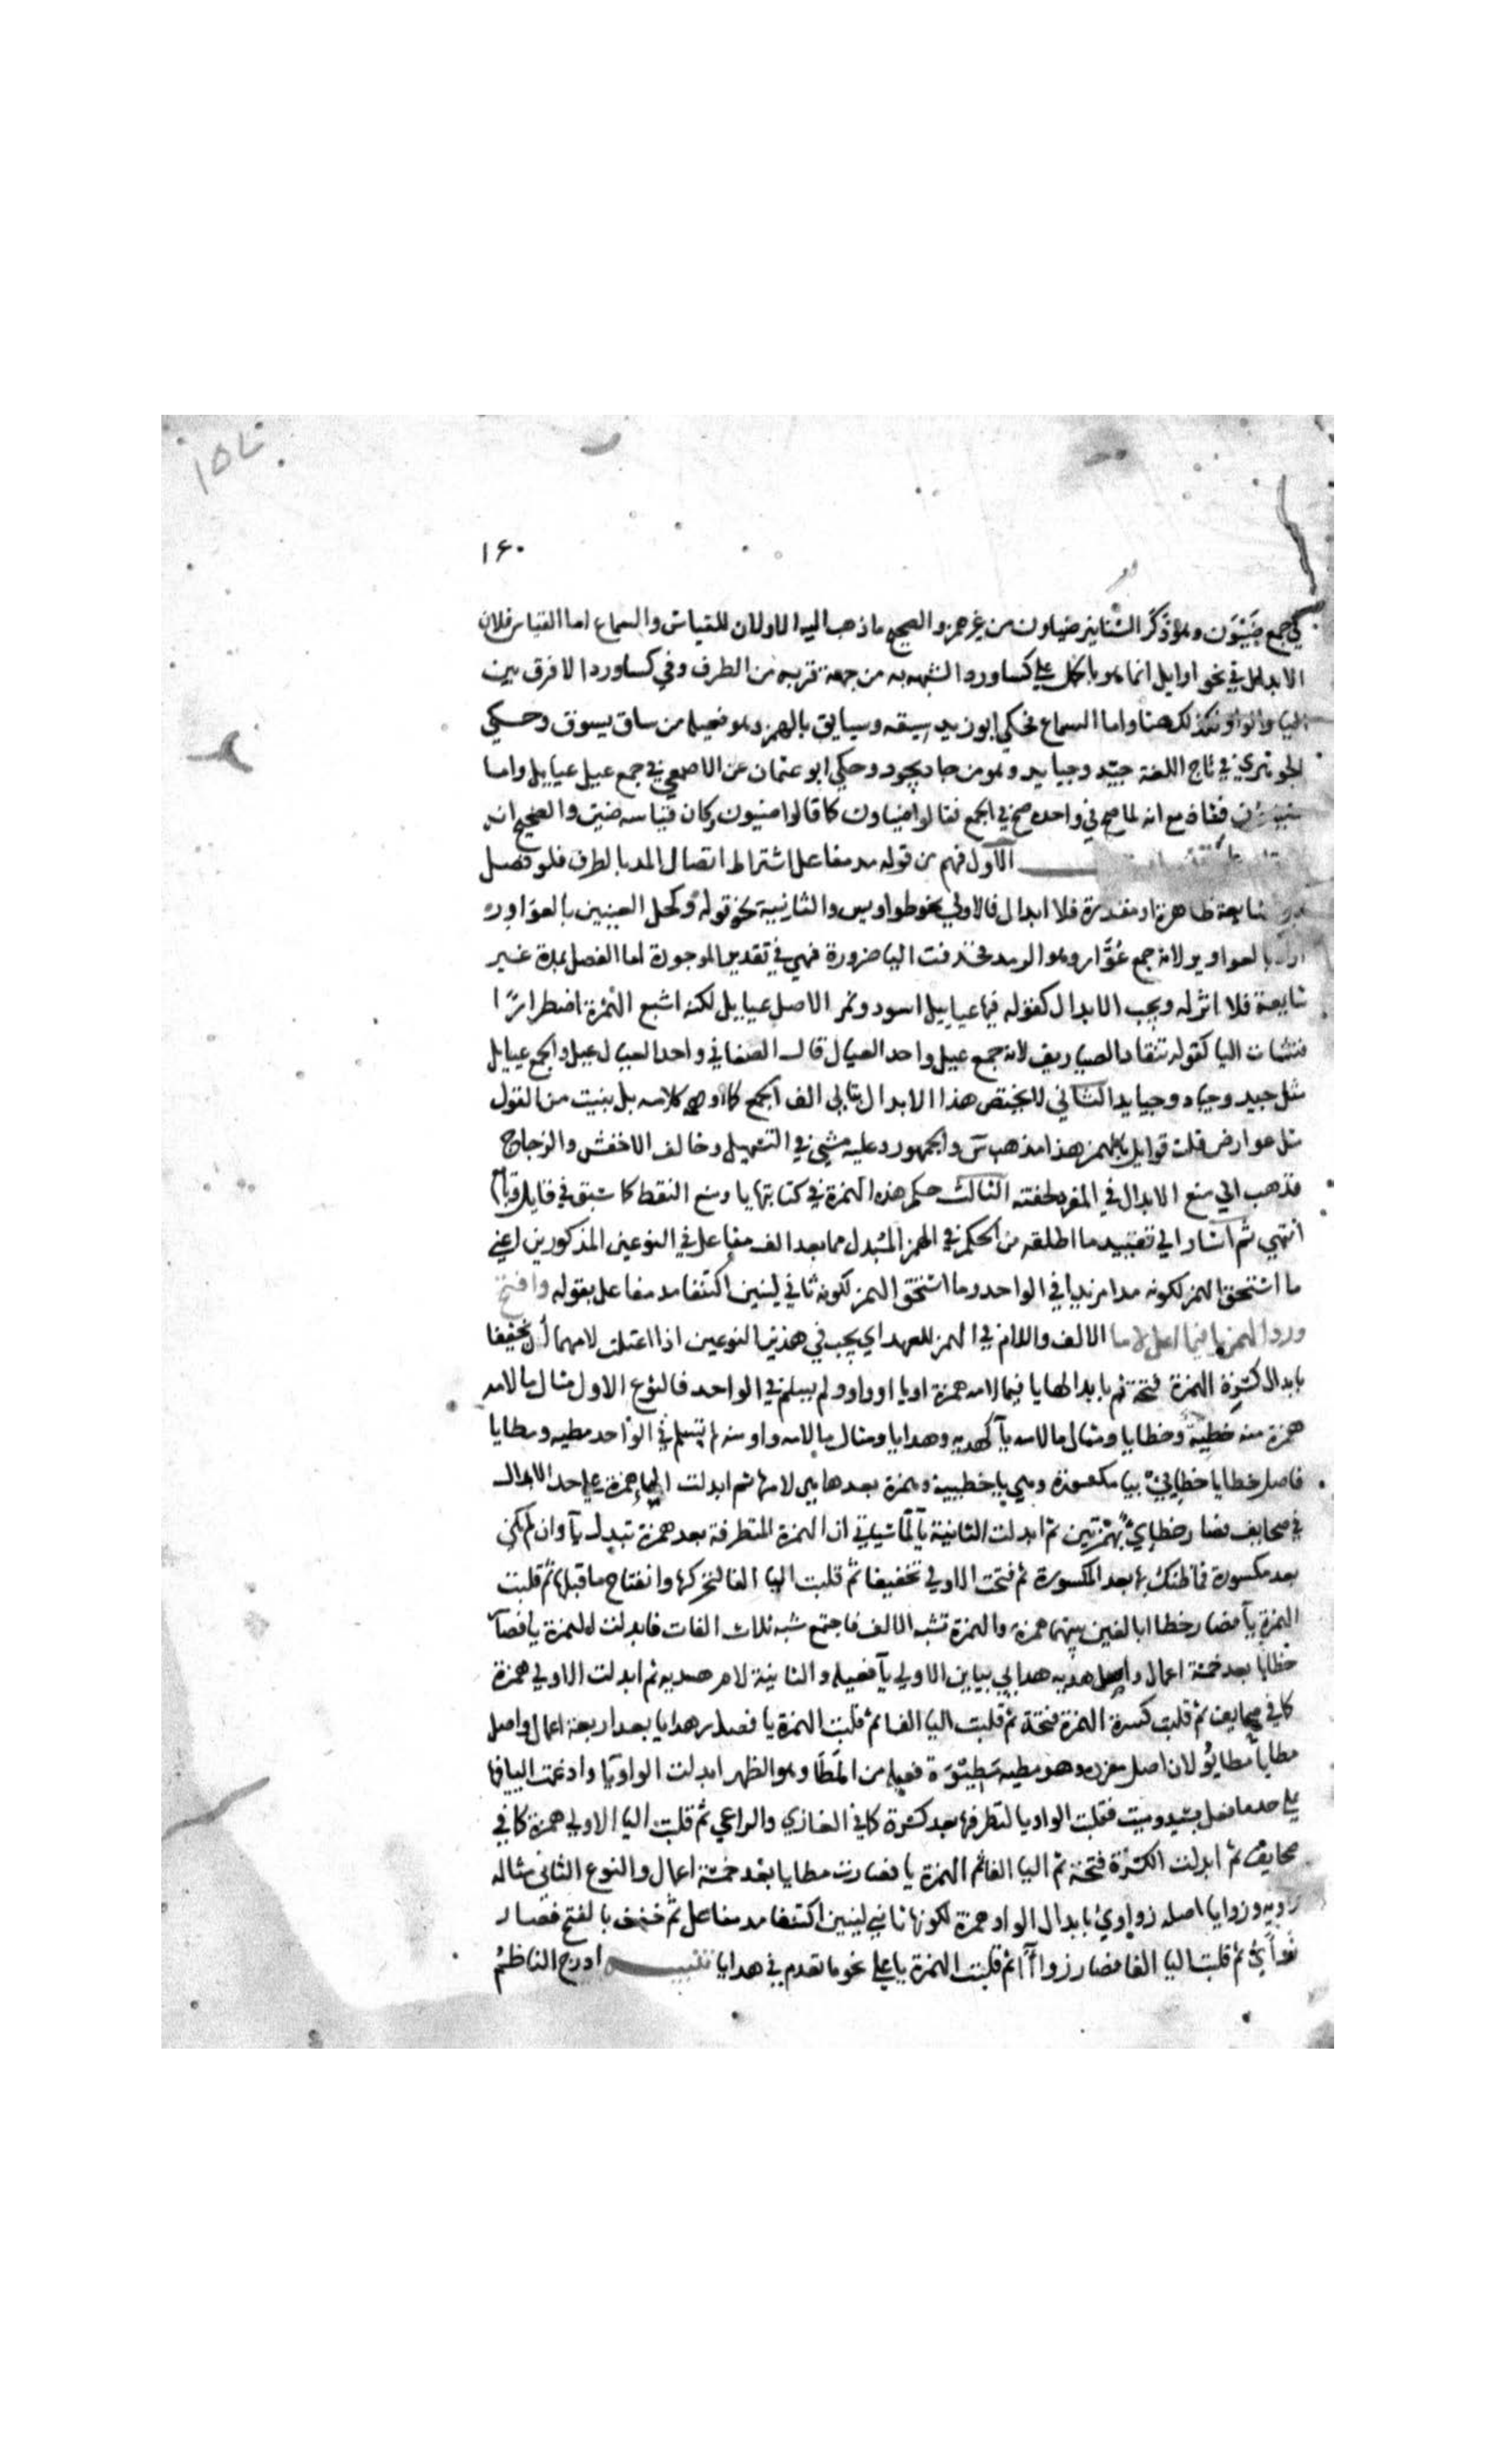 ١٦٠
في جمع ضَيْوَن وهو ذَكَر السنانير ضياون من غير همز والصحيح ما ذهب اليه الاولان للقياس والسماع اما القياس فلان
الابدال في نحو اوايل انما هو بالحمل علي كسا وردا لشبهه به من جهة قربه من الطرف وفي كسا وردا لا فرق بين
اليا والواو فكذلك هنا واما السماع فحكي ابو زيد سيقه وسيايق بالهمز وهو فعيله من ساق يسوق وحكي
الجوهري في تاج اللغة جيّد وجيايد وهو من جاد يجود وحكي ابو عثمان عن الاصمعي في جمع عيل عيايل واما
ضياون فشاذ مع انه لما صح في واحده صح في الجمع فقالوا ضياون كما قالوا ضيون وكان قياسه ضين والصحيح انه
الاول فهم من قوله مد مفاعل اشتراط اتصال المد بالطرف فلو فصل
شايعة ظاهرة او مقدرة فلا ابدال فالاولي نحو طواويس والثانية نحو قوله وكحل العينين بالعواور
اراد بالعواوير لانه جمع عُوَّار وهو الرمد فحذفت اليا ضرورة فهي في تقدير الموجودة اما الفصل بمدة غير
شايعة فلا اثر له ويجب الابدال كقوله فيها عياييل اسود ونمر الاصل عيايل لكنه اشبع الهمزة اضطرارًا
فنشات اليا كقوله تنقاد الصياريف لانه جمع عيل واحد العيال قال الصغاني واحد العيال عيل والجمع عيايل
مثل جيد وجياد وجيايد الثاني لا يختص هذا الابدال بتالي الف الجمع كما اوهمه كلامه بل لو بنيت من القول
مثل عوارض قلت قوايل بالهمز هذا مذهب س والجمهور وعليه مشي في التسهيل وخالف الاخفش والزجاج
فذهبا الي منع الابدال في المفرد لخفته الثالث حكم هذه الهمزة في كتابتها يا ومنع النقط كما سبق في قايل وبايع
انتهي ثم اشار الي تقييد ما اطلقه من الحكم في الهمز المبدل مما بعد الف مفاعل في النوعين المذكورين اعني
ما استحق الهمز لكونه مدا مزيدا في الواحد وما استحق الهمز لكونه ثاني لينين اكتنفا مد مفاعل بقوله وافتح
ورد الهمز يا فيما اعل لاما الالف واللام في الهمز للعهد اي يجب في هذين النوعين اذا اعتلت لامهما ان يخففا
بابدال كسرة الهمزة فتحة ثم بابدالها يا فيما لامه همزة او يا او واو ولم يسلم في الواحد فالنوع الاول مثال ما لامه
همزة منه خطيئة وخطايا ومثال ما لامه يآ كهديه وهدايا ومثال ما لامه واو منه لم تسلم في الواحد مطيه ومطايا
فاصل خطايا خطايئ بيا مكسورة وهي يا خطيية وهمزة بعدها هي لامها ثم ابدلت اليا همزة علي حد الابدال
في صحايف فصار خطائئ بهمزتين ثم ابدلت الثانية يآ لما سياتي ان الهمزة المتطرفة بعد همزة تبدل يآ وان لم تكن
بعد مكسورة فما ظنك بها بعد المكسورة ثم فتحت الاولي تخفيفا ثم قلبت اليا الفا لتحركها وانفتاح ما قبلها ثم قلبت
الهمزة يآ فصار خطاا بالفين بينهما همزة والهمزة تشبه الالف فاجتمع شبه ثلاث الفات فابدلت الهمزة يا فصار
خطايا بعد خمسة اعمال واصل هديه هدايي بيايين الاولي يآ فعيله والثانية لام هديه ثم ابدلت الاولي همزة
كما في صحايف ثم قلبت كسرة الهمزة فتحة ثم قلبت اليا الفا ثم قلبت الهمزة يا فصار هدايا بعد اربعة اعمال واصل
مطايا مطايوُ لان اصل مفرده وهو مطيه مَطِيْوَة فعيله من المَطَا وهو الظهر ابدلت الواو يا وادغمت اليا فيها
علي حد ما فعل بسيد وميت فقلبت الواو يا لتطرفها بعد كسرة كما في الغازي والراعي ثم قلبت اليا الاولي همزة كما في
صحايف ثم ابدلت الكسرة فتحة ثم اليا الفا ثم الهمزة يا فصارت مطايا بعد خمسة اعمال والنوع الثاني مثاله
زاويه وزوايا اصله زواوي بابدال الواو همزة لكونها ثاني لينين اكتنفا مد مفاعل ثم خفف بالفتح فصار
زواءَيُ ثم قلبت اليا الفا فصار زواآ ثم قلبت الهمزة يا علي نحو ما تقدم في هدايا تنبيه ادرج الناظم